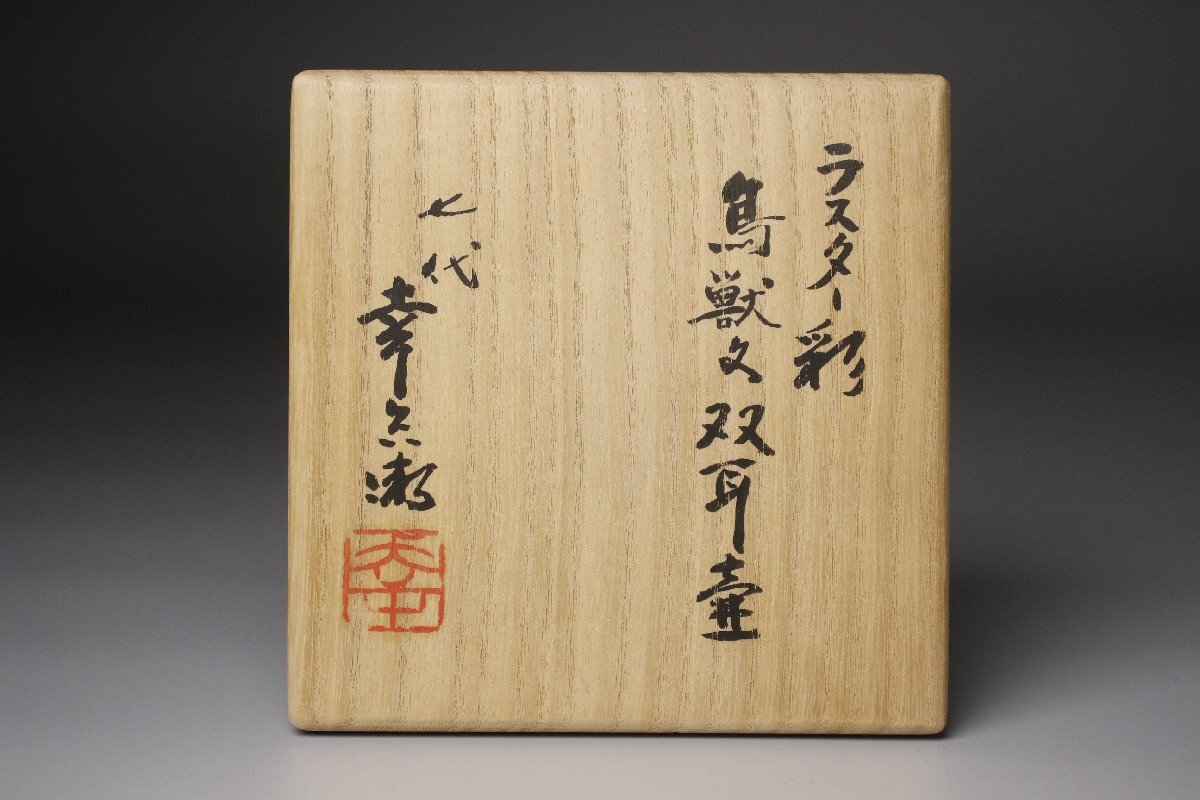 ラスター彩
鳥獣文双耳壷
七代
幸兵衛